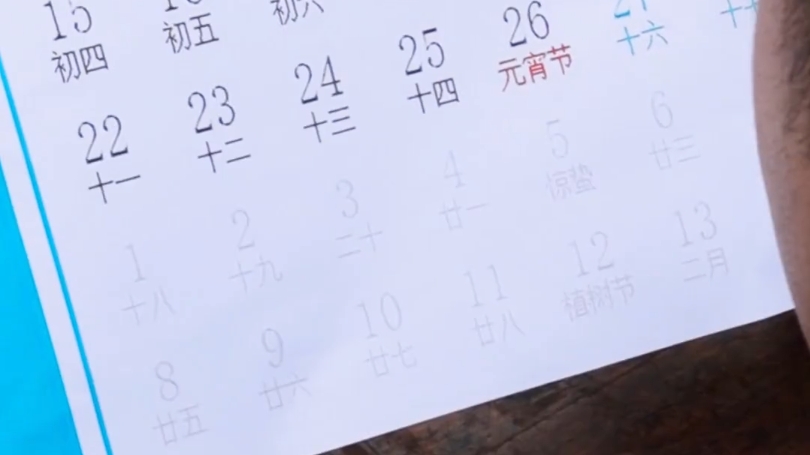 15 16
初四 初五 初六
22 23 24 25 26 27
十一 十二 十三 十四 元宵节 十六
1 2 3 4 5 6
十八 十九 二十 廿一 惊蛰 廿三
8 9 10 11 12 13
廿五 廿六 廿七 廿八 植树节 二月